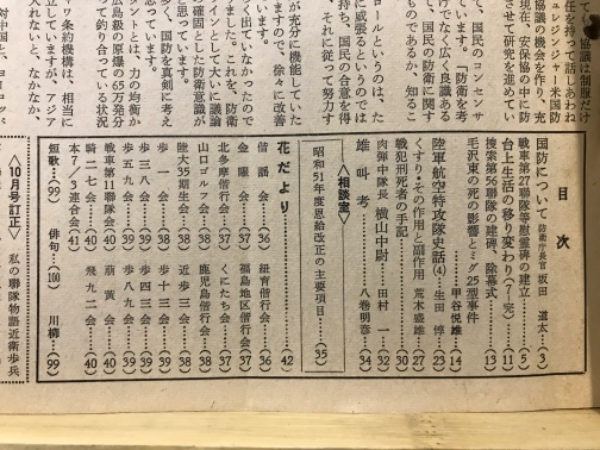 ても、協議は制服だけ
任を持って話しあわね
ュレジンジャー米国防
協議の機会を作り、充
現在、安保協の中に防
させて研究を進めてい
て、国民のコンセンサ
ています。「防衛を考
けでなく広く良識ある
て、国民の防衛に関す
ものであるか、知るこ
ロールというのは、た
に威張るというのでは
持ち、国民の合意を得
、それに従って努力す
が充分に機能していた
く出ていなかったので
いますので、徐々に改善
います。
ました。これを、防衛
インとして大いに議論
確固とした防衛意識が
と思っています。
多く、国防を真剣に考え
思っています。
タントとは、力の均衡か
広島級の原爆の65万発分
って釣り合っている状況
ワ条約機構は、相当に
立していますが、アジア
入れないと、なかなか、
目次
国防について 防衛庁長官 坂田道太…(3)
戦車第27聯隊等慰霊碑の建立……(5)
台上生活の移り変わり(7-完)…(11)
捜索第56聯隊の建碑、除幕式……(13)
毛沢東の死の影響とミグ25型事件
……甲谷悦雄…(14)
陸軍航空特攻隊史話(4)…生田惇…(23)
くすり・その作用と副作用 荒木盛雄…(27)
戦犯刑死者の手記……(30)
肉弾中隊長 横山中尉…田村一…(32)
雄叫考……八巻明彦…(34)
<相談室>
昭和51年度恩給改正の主要項目……(35)
花だより……(42)
偕話会……(36) 紐育偕行会…(36)
金曜会……(37) 福島地区偕行会…(37)
北多摩偕行会…(37) くにたち会…(37)
山口ゴルフ会…(38) 鹿児島偕行会…(38)
陸大35期生会…(38) 近歩三会…(38)
歩一会……(38) 歩十三会…(39)
歩三八会……(39) 歩四三会…(39)
歩五九会……(39) 歩八九会…(39)
戦車第11聯隊会(40) 萠黄会…(40)
騎二七会……(40) 飛九二会…(40)
本7/3連合会(41)
短歌…(99) 俳句…(100) 川柳…(99)
<10月号訂正> 私の聯隊物語近衛歩兵